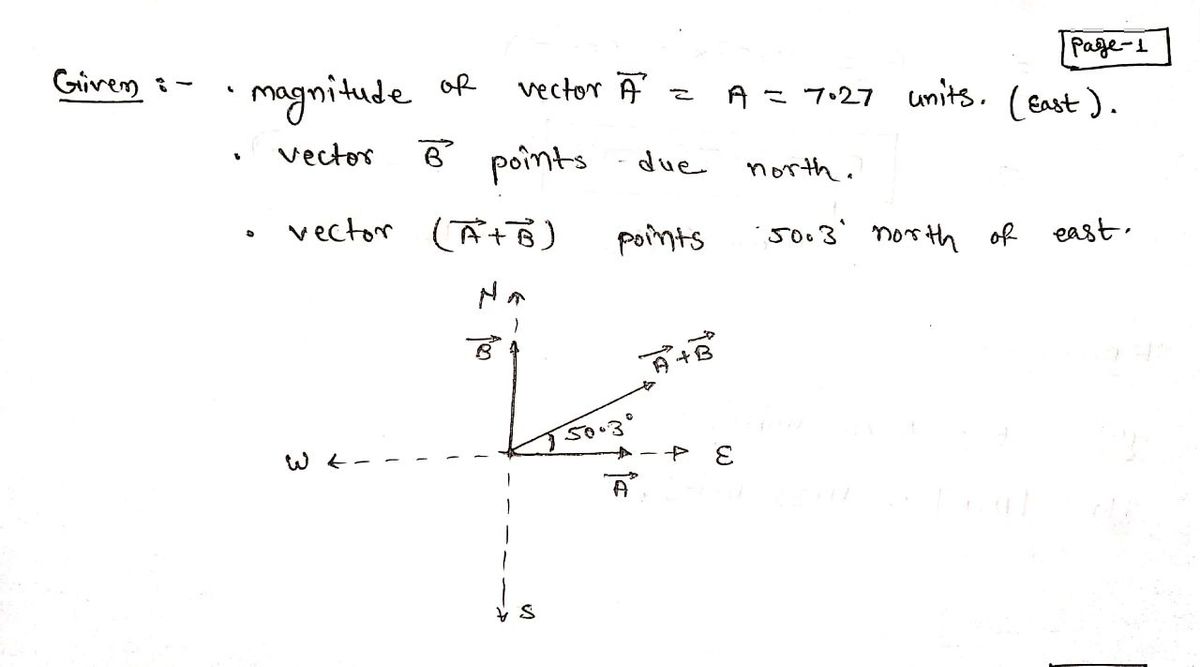 Page-1
Given :- • magnitude of vector A⃗ = A = 7.27 units. (East).
• vector B⃗ points due north.
• vector (A⃗+B⃗) points 50.3° north of east.
N
B⃗
A⃗+B⃗
50.3°
W
E
A⃗
S